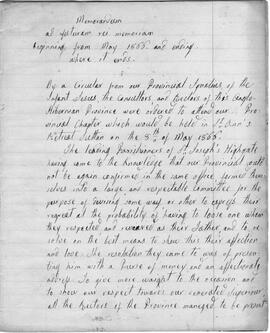 Memorandum
ad futuram rei memoriam
beginning from May 1863 and ending
where it ends.
By a circular from our Provincial Ignatius of the
Infant Jesus, the Consultors, and Rectors of that Anglo-
Hibernian Province were ordered to attend our Pro-
vincial Chapter which would be held in St Ann's
Retreat Sutton on the 5th of May 1863.
The leading Parishioners of St Joseph's Highgate
having come to the knowledge that our Provincial could
not be again confirmed in the same office, formed them
selves into a large and respectable committee for the
purpose of devising some way or other to express their
regret at the probability of having to loose one whom
they respected and revered as their Father, and to re-
solve on the best means to show this their affection
and love. The resolution they came to was of present-
ing him with a purse of money and an affectionate
address. To give more weight to the occasion and
to show our respect towards our venerated Superior
all the Rectors of the Province managed to be present